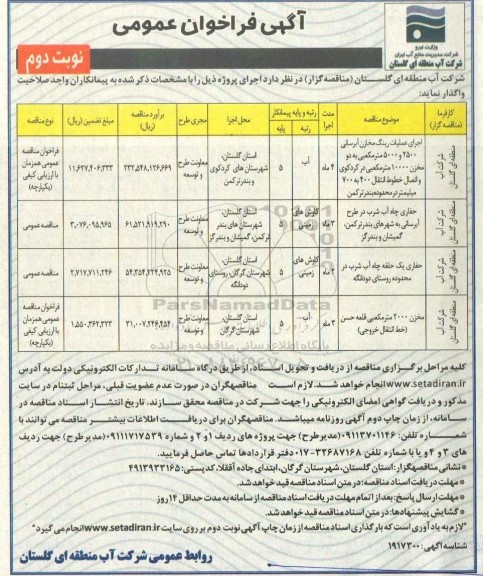 آگهی فراخوان عمومی
نوبت دوم
وزارت نیرو
شرکت مدیریت منابع آب ایران
شرکت آب منطقه ای گلستان
شرکت آب منطقه ای گلستان (مناقصه گزار) در نظر دارد اجرای پروژه ذیل را با مشخصات ذکر شده به پیمانکاران واجد صلاحیت
واگذار نماید:
کارفرما (مناقصه گزار) موضوع مناقصه مدت اجرا رتبه و پایه پیمانکار محل اجرا مجری طرح برآورد مناقصه (ریال) مبلغ تضمین (ریال) نوع مناقصه
رتبه پایه
شرکت آب منطقه ای گلستان اجرای عملیات رینگ مخازن آبرسانی ۲۵۰۰ و ۵۰۰۰ مترمکعبی به دو مخزن ۱۰۰۰۰ مترمکعبی در کردکوی و اتصال خطوط انتقال ۴۰۰ به ۷۰۰ میلیمتر در محدوده بندر ترکمن ۴ ماه آب ۵ استان گلستان، شهرستان های کردکوی و بندر ترکمن معاونت طرح و توسعه ۲۳۲,۵۴۸,۱۲۶,۶۶۹ ۱۱,۶۲۷,۴۰۶,۳۳۳ فراخوان مناقصه عمومی همزمان با ارزیابی کیفی (یکپارچه)
شرکت آب منطقه ای گلستان حفاری چاه آب شرب در طرح آبرسانی به شهرهای بندر ترکمن، گمیشان و بندرگز ۳ ماه کاوش های زمینی ۵ استان گلستان، شهرستان های بندر ترکمن، گمیشان و بندرگز معاونت طرح و توسعه ۶۱,۵۲۱,۹۱۹,۲۹۰ ۳,۰۷۶,۰۹۵,۹۶۵ مناقصه عمومی
شرکت آب منطقه ای گلستان حفاری یک حلقه چاه آب شرب در محدوده روستای دودانگه ۲ ماه کاوش های زمینی ۵ استان گلستان، شهرستان گرگان، روستای دودانگه معاونت طرح و توسعه ۵۴,۳۵۴,۲۲۴,۹۲۵ ۲,۷۱۷,۷۱۱,۲۴۶ مناقصه عمومی
شرکت آب منطقه ای گلستان مخزن ۲۰۰۰ مترمکعبی قلعه حسن (خط انتقال خروجی) ۳ ماه آب ۵ استان گلستان، شهرستان گرگان معاونت طرح و توسعه ۳۱,۰۰۷,۲۴۶,۴۵۴ ۱,۵۵۰,۳۶۲,۳۲۳ فراخوان مناقصه عمومی همزمان با ارزیابی کیفی (یکپارچه)
ParsNamadData
پایگاه اطلاع رسانی مناقصه و مزایده
کلیه مراحل برگزاری مناقصه از دریافت و تحویل اسناد، از طریق درگاه سامانه تدارکات الکترونیکی دولت به آدرس
www.setadiran.ir انجام خواهد شد. لازم است مناقصه گران در صورت عدم عضویت قبلی، مراحل ثبت نام در سایت
مذکور و دریافت گواهی امضای الکترونیکی را جهت شرکت در مناقصه محقق سازند. تاریخ انتشار اسناد مناقصه در
سامانه، از زمان چاپ دوم آگهی روزنامه میباشد. مناقصه گران برای دریافت اطلاعات بیشتر مناقصه می توانند با
شماره تلفن: ۰۹۱۱۳۷۰۱۱۴۶ (مدیر طرح) جهت پروژه های ردیف ۱ و ۲ و شماره ۰۹۱۱۱۷۱۷۵۳۹ (مدیر طرح) جهت ردیف
های ۳ و ۴ و یا با شماره تلفن ۳۲۶۸۷۱۶۸-۰۱۷ دفتر قراردادها تماس حاصل فرمایید.
* نشانی مناقصه گزار: استان گلستان، شهرستان گرگان، ابتدای جاده آققلا، کدپستی: ۴۹۱۳۹۳۳۱۶۵
* مهلت دریافت اسناد مناقصه: در متن اسناد مناقصه قید خواهد شد.
* مهلت ارسال پاسخ: بعد از اتمام مهلت دریافت اسناد مناقصه از سامانه به مدت حداقل ۱۴ روز
* گشایش پیشنهادها: در متن اسناد مناقصه قید خواهد شد.
"لازم به یادآوری است که بارگذاری اسناد مناقصه از زمان چاپ آگهی نوبت دوم بر روی سایت www.setadiran.ir انجام می گیرد"
شناسه آگهی: ۱۹۱۷۳۰۰
روابط عمومی شرکت آب منطقه ای گلستان